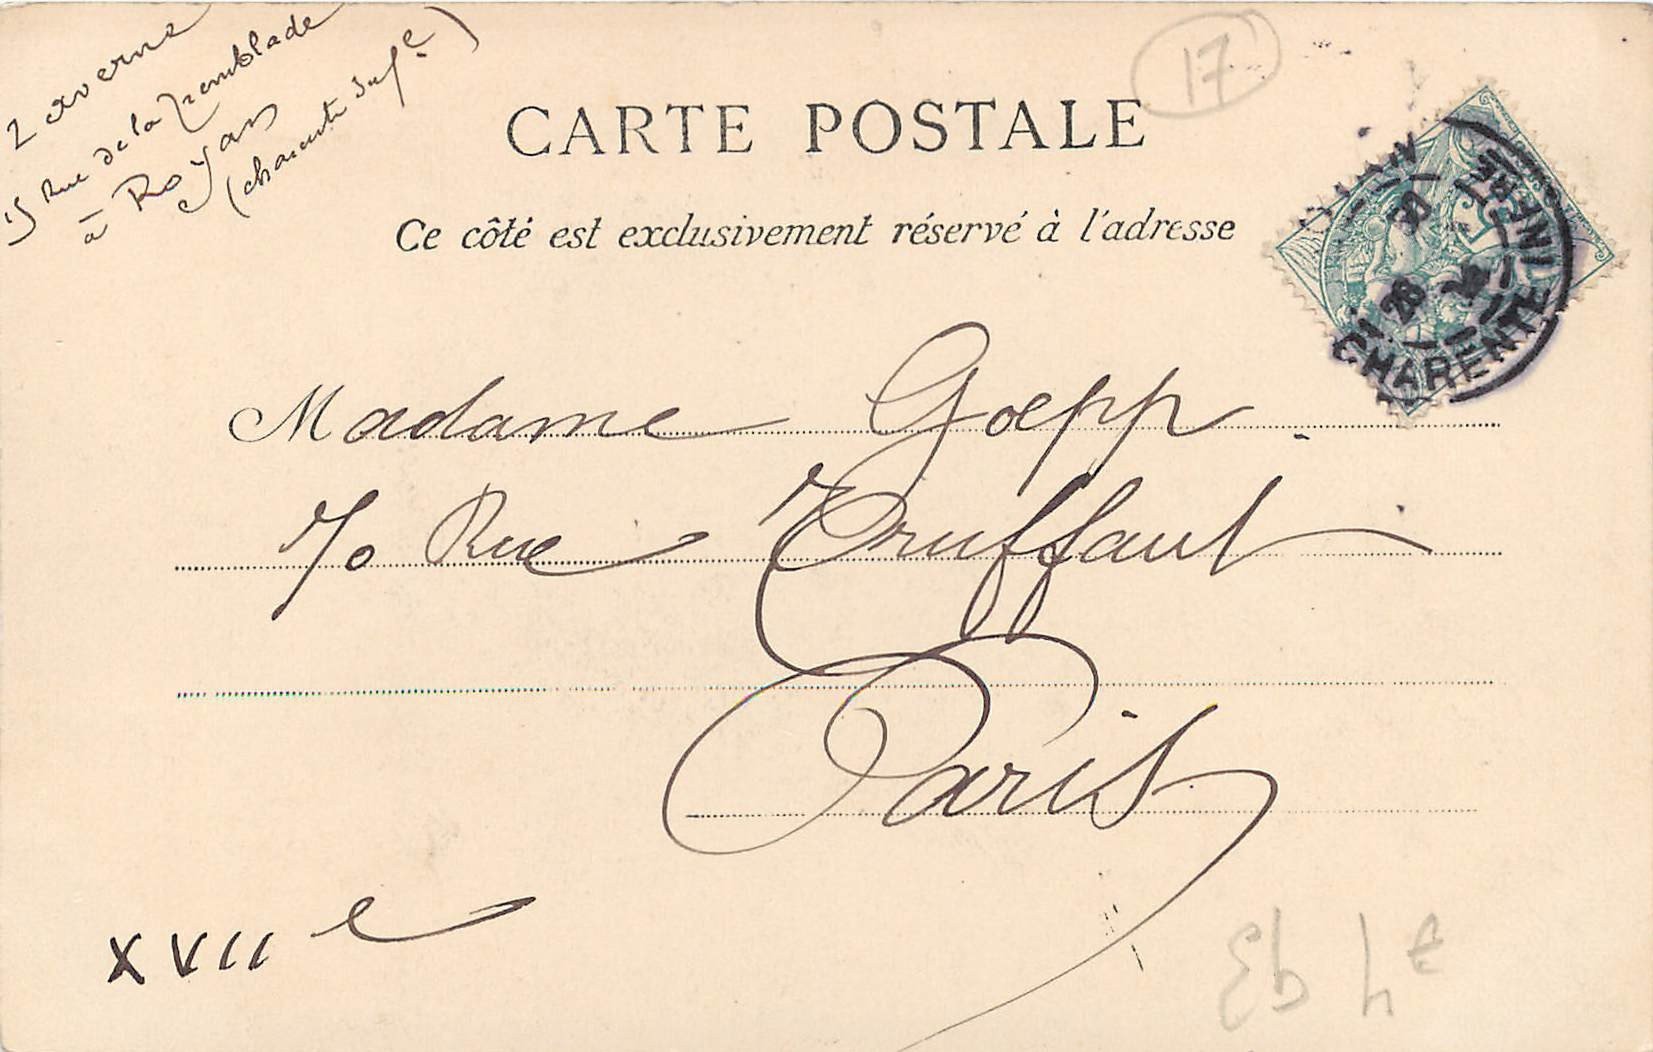 15 Rue de la Tremblade
à Royan
(charente Infe)
17
CARTE POSTALE
Ce côté est exclusivement réservé à l'adresse
CHARENTE INFRE
28
Madame Goepp.
70 Rue Truffaut
Paris
XVIIe